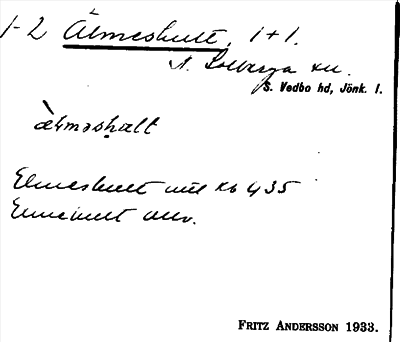 1-2 Älmeshult, 1+1.
N. Solberga sn.
S. Vedbo hd, Jönk. l.
älməshalt
Elmeshult mtl kb 435
FRITZ ANDERSSON 1933.